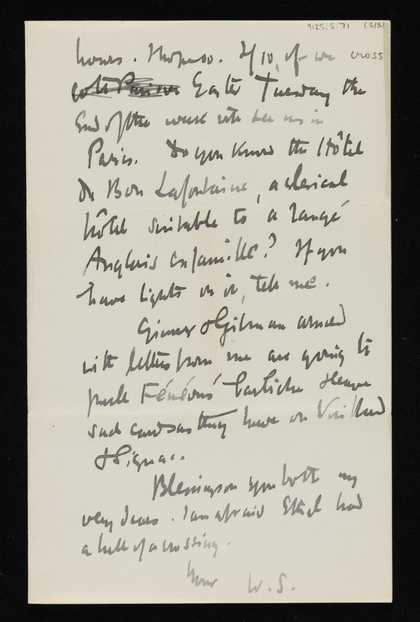 9125.5.71 (2/2)
hours. I hope so. If so, if we cross
Easter Tuesday the
end of the week will see us in
Paris. Do you know the Hôtel
du Bon Lafontaine, a clerical
hôtel suitable to a rangé
Anglais en famille? If you
have lights on it, tell me.
Ginner & Gilman armed
with letters from me are going to
Fénéons' & leave
such cards as they have on Vuillard
& Signac.
Blessings on you both my
very dears. I am afraid Ethel had
a hell of a crossing.
Yours W. S.